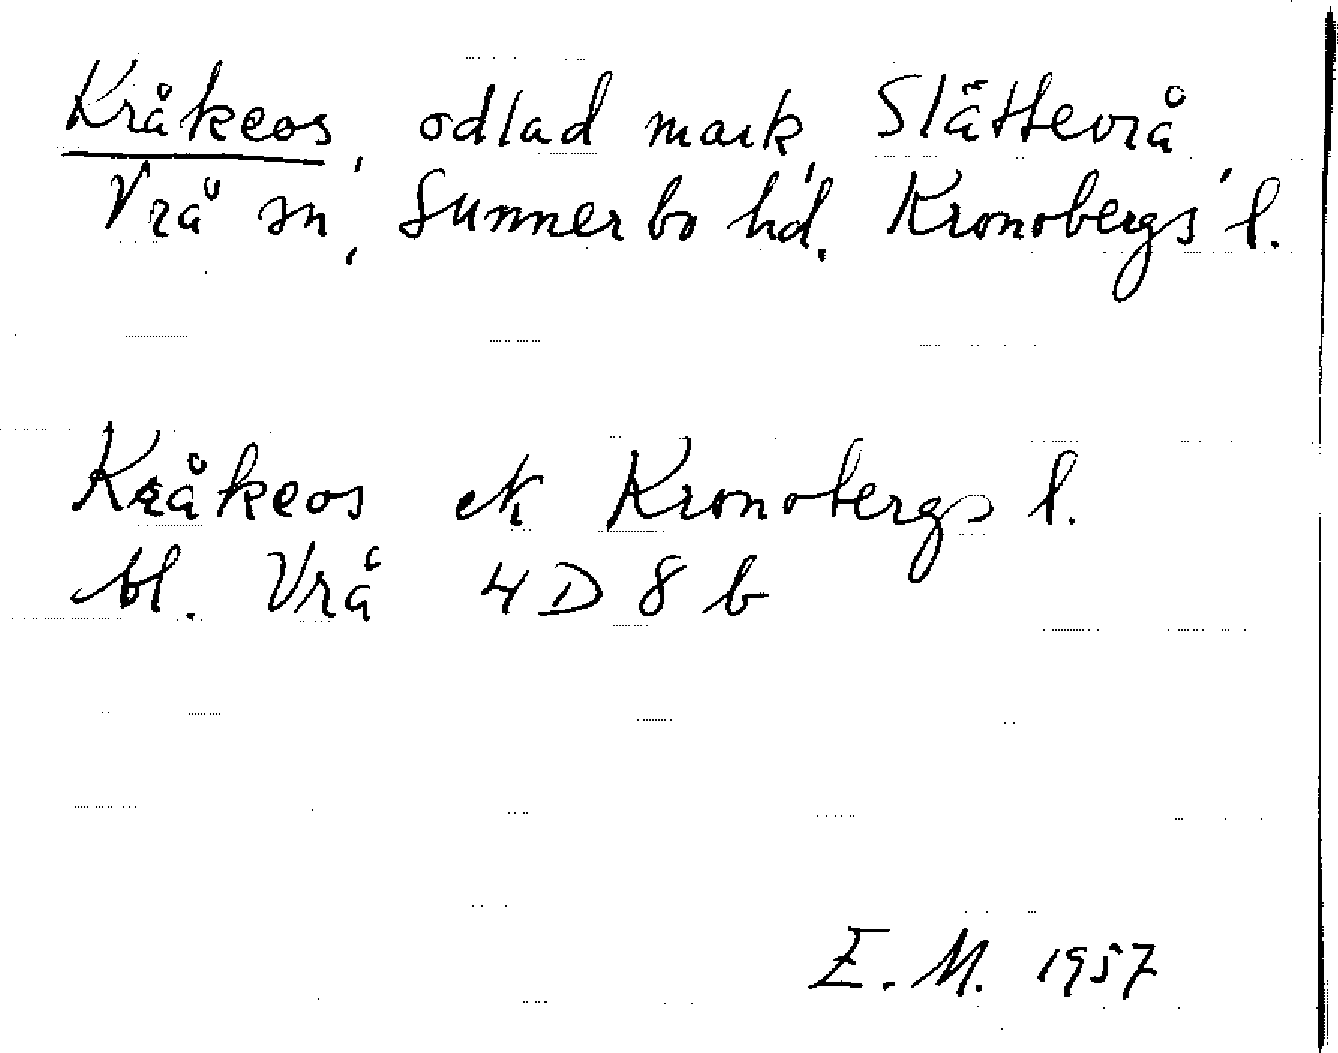 Kråkeos, odlad mark, Slättevrå,
Vrå sn, Sunnerbo hd, Kronobergs l.
Kråkeos ek Kronobergs l.
bl. Vrå 4D 8 b
E. M. 1957